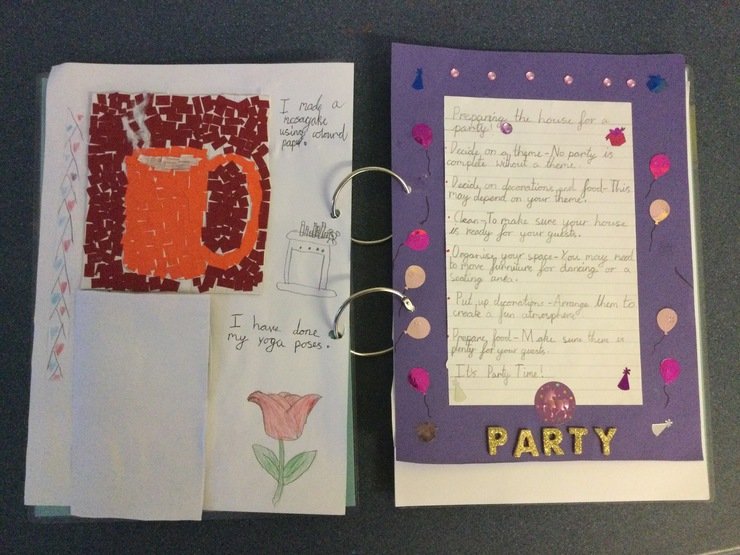 I made a
mosaake
using coloured
paper.
I have done
my yoga poses.
Preparing the house for a
party!
Decide on a theme-No party is
complete without a theme.
Decide on decorations and food-This
may depend on your theme.
Clean-To make sure your house
is ready for your guests.
Organise your space-You may need
to move furniture for dancing or a
seating area.
Put up decorations-Arrange them to
create a fun atmosphere
Prepare food-Make sure there is
plenty for your guests.
It's Party Time!
PARTY